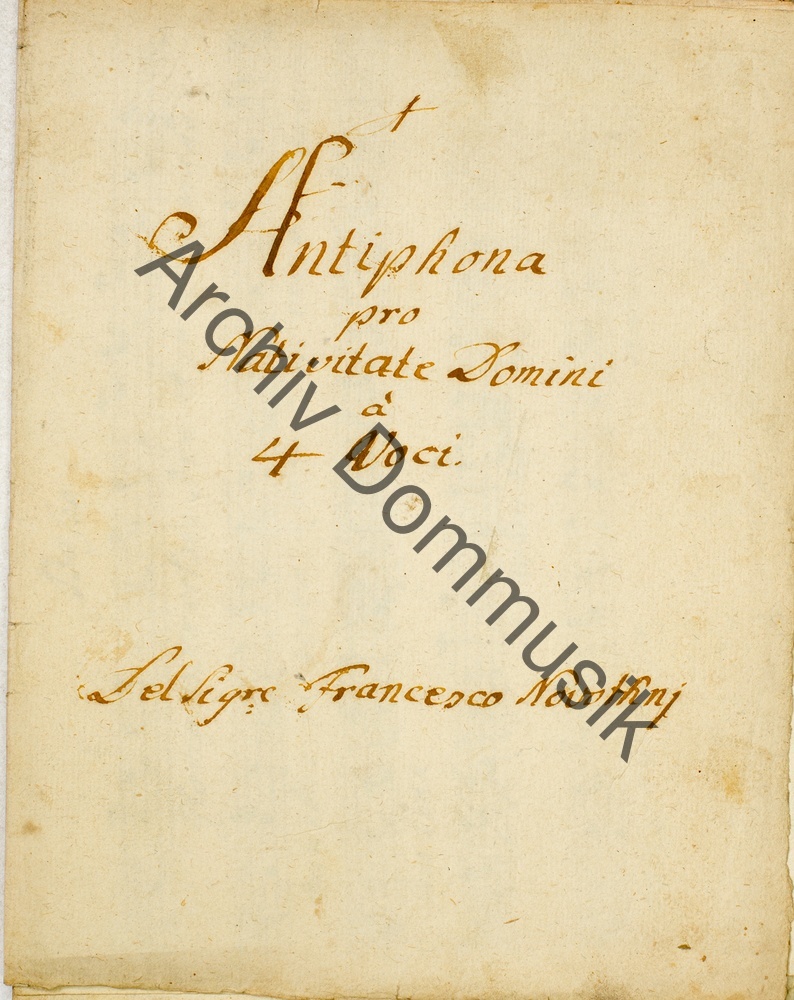 Antiphona
pro
Nativitate Domini
à
4 Voci.
Del Sigre Francesco Novothnj
Archiv Dommusik